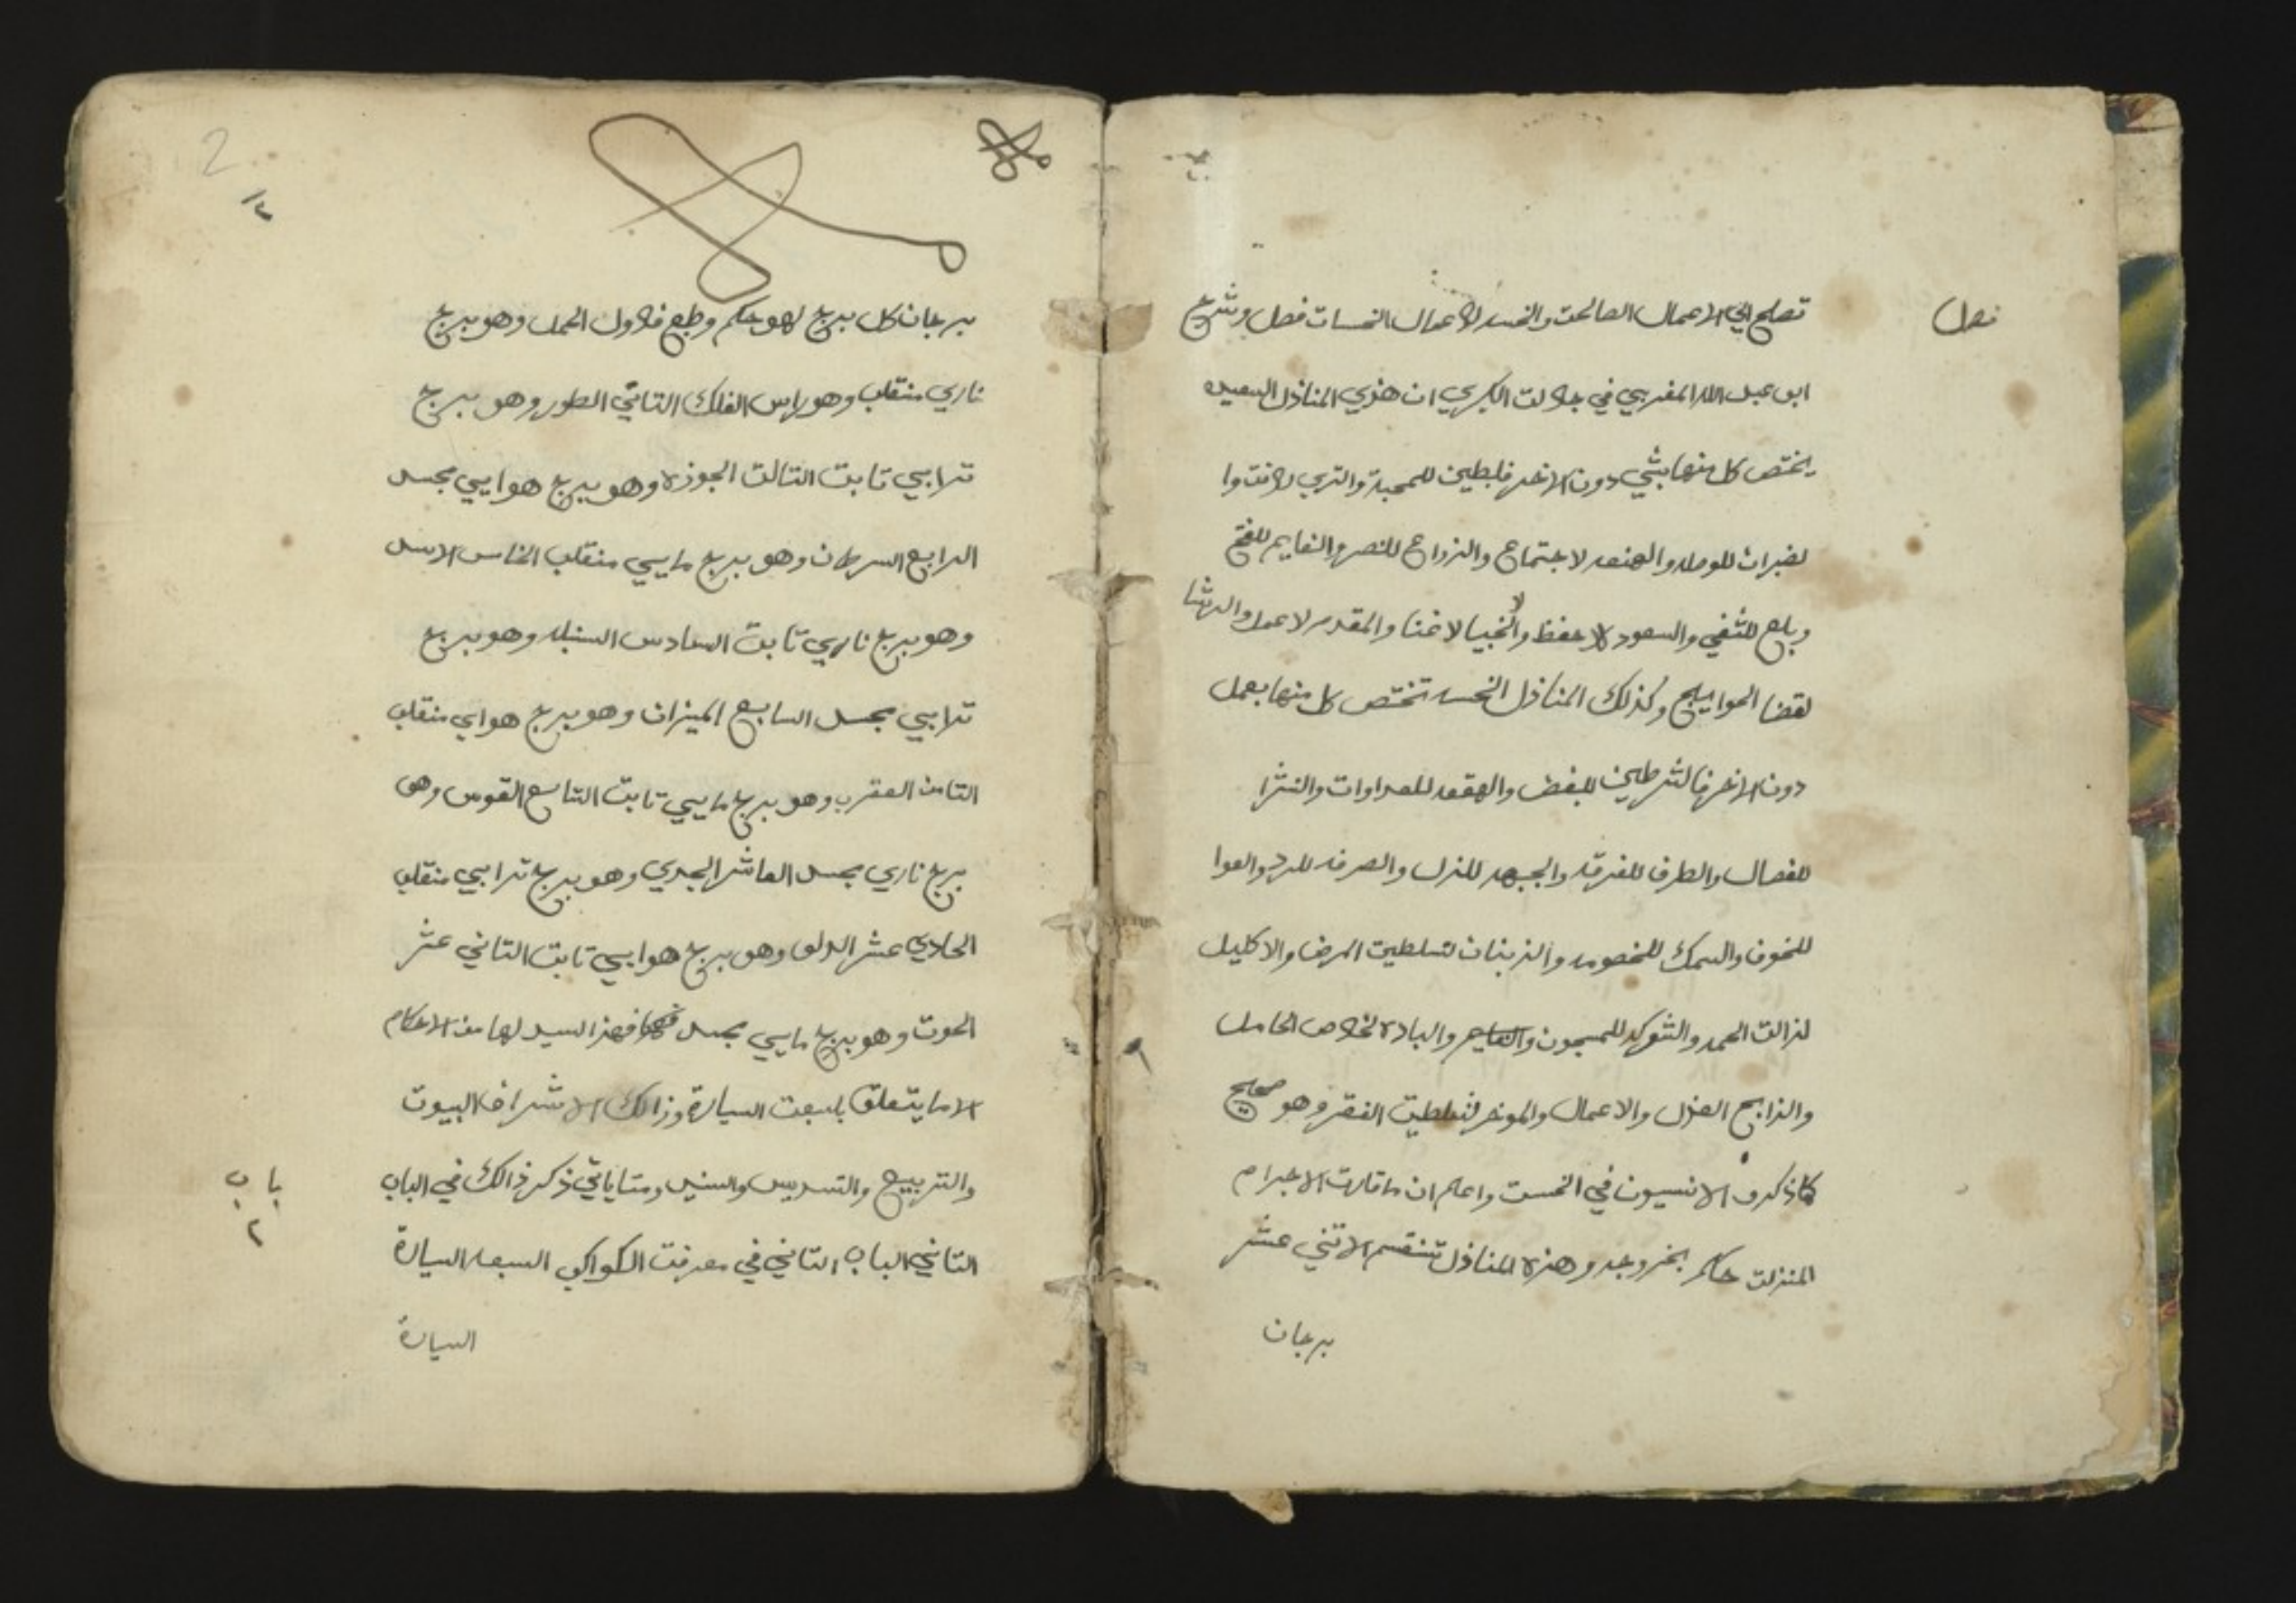 فصل
تصلح الي الاعمال الصالحت والنحسه لاعمال النحسات فصل وشرح
ابو عبد الله المغربي في جلالت الكبري ان هذي المنازل السعيده
يختص كل منها بشي دون الاخر فلبطين للمحبة والتري
للوصله والهنعه لاجتماع والزراع للنصر والنعايم للفتح
وبلع للشفي والسعود لا حفظ والخبيا لا غنا والمقدم لا عمل والرشا
لقضا الحوايج وكذلك المنازل النحسه تختص كل منها بعمل
دون الاخر فالشرطين للبغض والهقعه للعداوات والنثرا
للفصال والطرف للفرقه والجبهه للنزل والصرفه للرد والعوا
للخوف والسمك للخصومه والزبنان لتسلطين المرض والاكليل
لزالت الحمه والشوكه للمسجون والبلده لخلاص الحامل
والذابح العزل والاعمال والموخر لتسلطين الفقر وهو صحيح
كما ذكره الانسيون في الخمست واعلم ان ما قارت الاجرام
المنزلت حاكم بخروجه وهذه المنازل تنقسم لاتني عشر
برجان
2
برجان كل برج لهو حكم وطبع فلاول الحمل وهو برج
ناري منقلب وهو راس الفلك التاني الطور وهو برج
ترابي تابت التالت الجوزه وهو برج هوايي مجسد
الرابع السرطان وهو برج مايي منقلب الخامس الاسد
وهو برج ناري تابت السادس السنبله وهو برج
ترابي مجسد السابع الميزان وهو برج هوايي منقلب
التامن العقرب وهو برج مايي تابت التاسع القوس وهو
برج ناري مجسد العاشر الجدي وهو برج ترابي منقلب
الحادي عشر الدلو وهو برج هوايي تابت التاني عشر
الحوت وهو برج مايي مجسد فهذا السيد لها من الاحكام
الا ما يتعلق بلسبعت السيارة وذالك الاشراف البيوت
والتربيع والتسديس والسنيد ومتا ياتي ذكر ذالك في الباب
باب
٢
التاني الباب التاني في معرفت الكواكب السبعه السيارة
السيارة